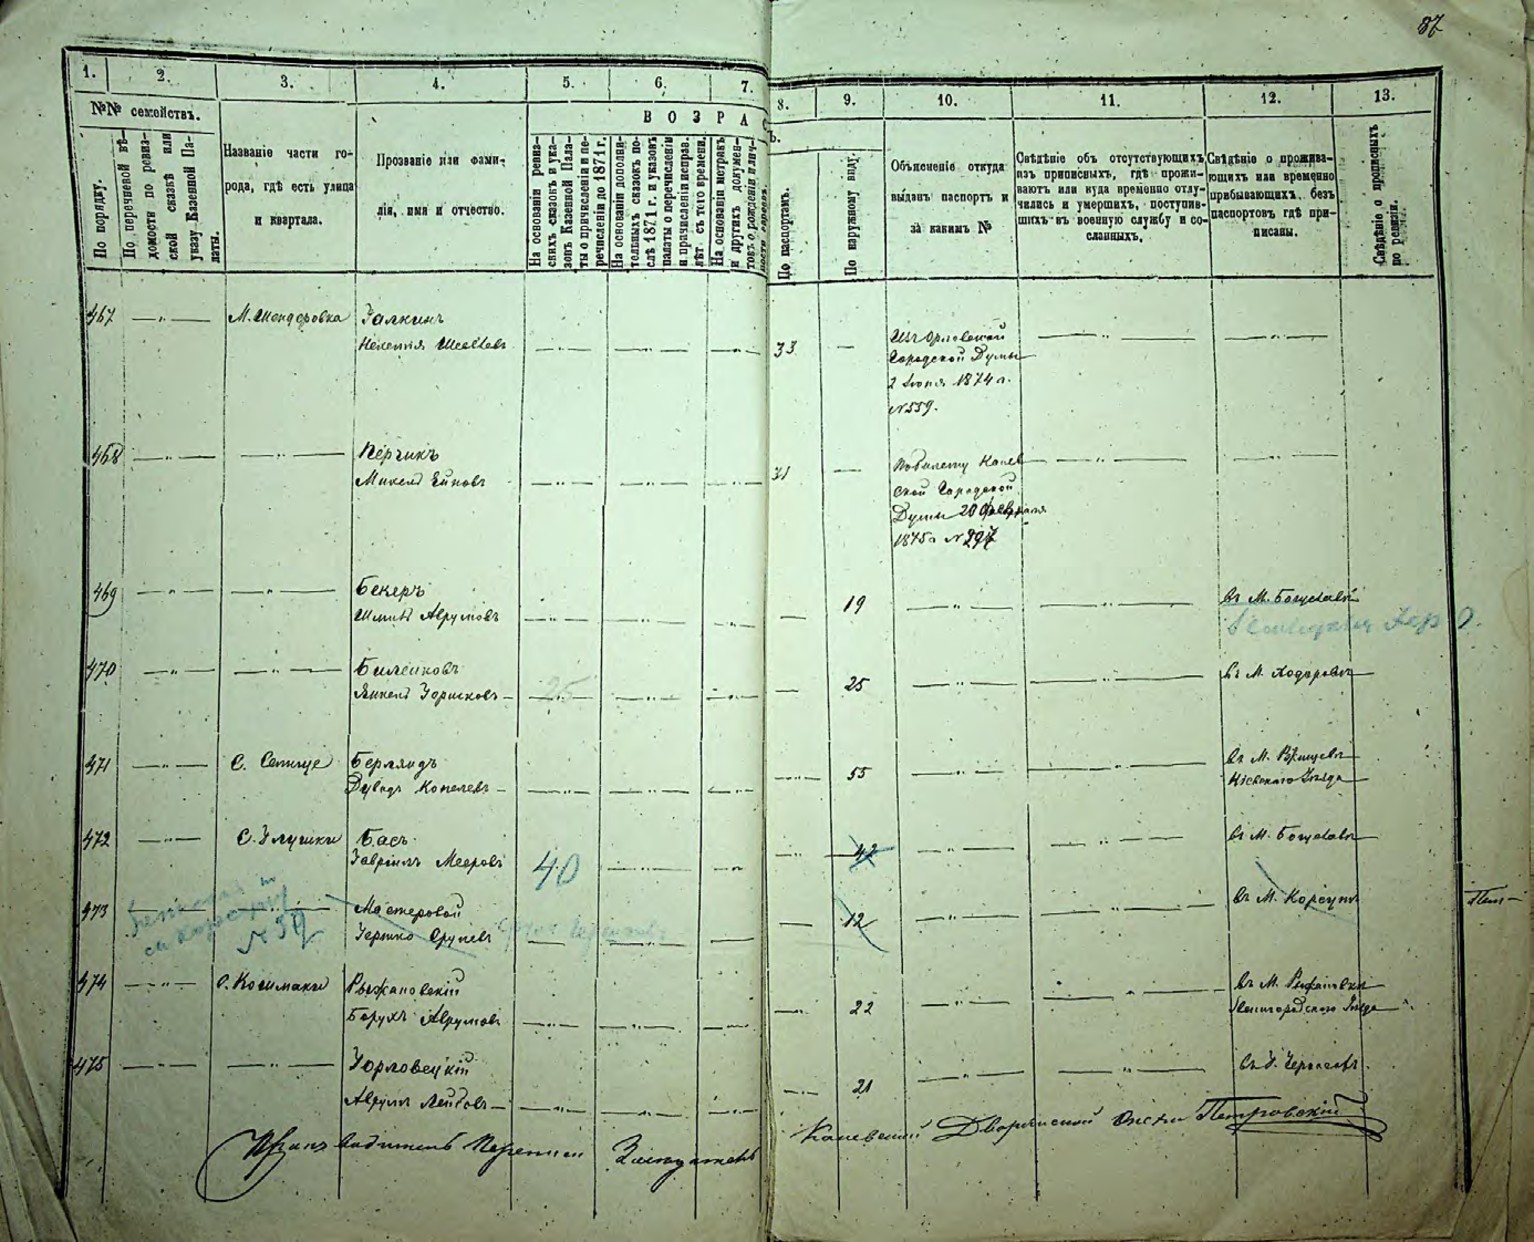 87
1. 2. 3. 4. 5. 6. 7. 8. 9. 10. 11. 12. 13.
№№ семействъ.
По порядку.
По перечневой вѣ-
домости по ревиз-
ской сказкѣ или
указу Казенной Па-
латы.
Названіе части го-
рода, гдѣ есть улица
и квартала.
Прозваніе или фами-
лія, имя и отчество.
ВОЗРАСТЪ.
На основаніи ревиз-
скихъ сказокъ и ука-
зовъ Казенной Пала-
ты о причисленіи и пе-
речисленіи до 1871 г.
На основаніи дополни-
тельныхъ сказокъ по-
слѣ 1871 г. и указовъ
палаты о перечисленіи
и причисленіи исправ.
лѣт съ того времени.
На основаніи метрикъ
и другихъ докумен-
товъ о рожденіи и лич-
ности евреевъ.
По паспортамъ.
По наружному виду.
Объясненіе откуда
выданъ паспортъ и
за какимъ №
Свѣдѣніе объ отсутствующихъ
изъ приписныхъ, гдѣ прожи-
ваютъ или куда временно отлу-
чились и умершихъ, поступив-
шихъ въ военную службу и со-
сланныхъ.
Свѣдѣніе о прожива-
ющихъ или временно
прибывающихъ безъ
паспортовъ гдѣ при-
писаны.
Свѣдѣніе о прописныхъ
по ревизіи.
467 — „ — М. Шендеровка Залкинъ
— „ — — „ — — „ — 33 — Изъ Орловской — „ — — „ —
Городской Думы
2 Іюня 1874 г.
№ 559.
468 — „ — — „ — Перчикъ
— „ — — „ — — „ — 31 — По билету Канев — „ — — „ —
ской Городской
Думы 20 Февраля
1875 г. № 297
469 — „ — — „ — Бекеръ
Аврумовъ — „ — — „ — — „ — — 19 — „ — — „ — въ М. Богуславѣ
470 — „ — — „ — Билейковъ
Янкель — 25 — „ — — „ — — 25 — „ — — „ — въ М. Ходоровѣ
471 — „ — С. Берляндъ
Дувидъ Копелевъ — „ — — „ — — „ — — 55 — „ — — „ — въ М. Ржищевѣ
Кіевскаго Уѣзда
472 — „ — С. Глушки Басъ
Гавріилъ Мееровъ 40 — „ — — „ — — 42 — „ — — „ — въ М. Богуславѣ
473 — „ — — „ — Мастеровой
Гершко Сруневъ — — — — 12 — „ — — „ — въ М. Корсунѣ
№ 39
474 — „ — С. Кошмаки Рыжановскій
Борухъ Аврумовъ — „ — — „ — — „ — — 22 — „ — — „ — въ М. Рыжановкѣ
Звенигородскаго Уѣзда
475 — „ — — „ — Горловецкій
Аврумъ Лейбовъ — „ — — „ — — „ — — 21 — „ — — „ —
Производитель Переписи Каневской Дворянской Опеки Петровскій